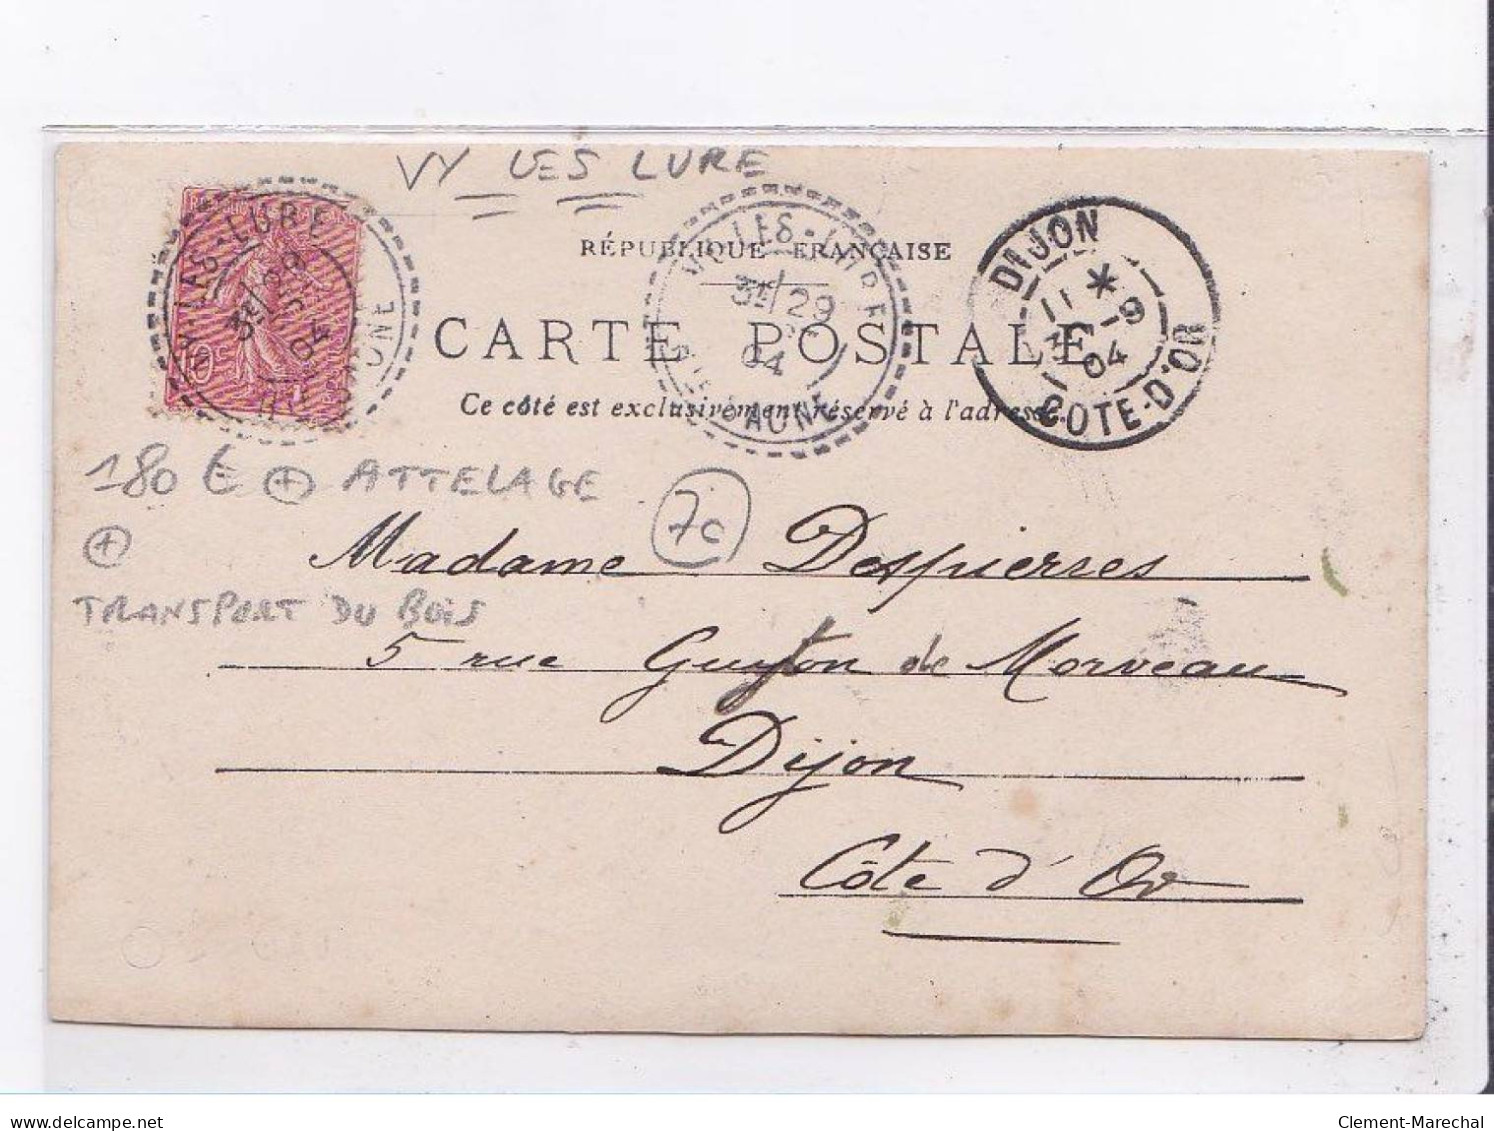 VY LES LURE
RÉPUBLIQUE FRANÇAISE
CARTE POSTALE
Ce côté est exclusivement réservé à l'adresse
VY-LES-LURE
3E/29
04
Hte SAONE
VY-LES-LURE
3E/29
04
Hte SAONE
DIJON
11 * 9
04
COTE-D'OR
180 € + ATTELAGE
70
+
TRANSPORT DU BOIS
Madame Despierres
5 rue Guyton de Morveau
Dijon
Côte d'Or
delcampe.net
Clement-Marechal